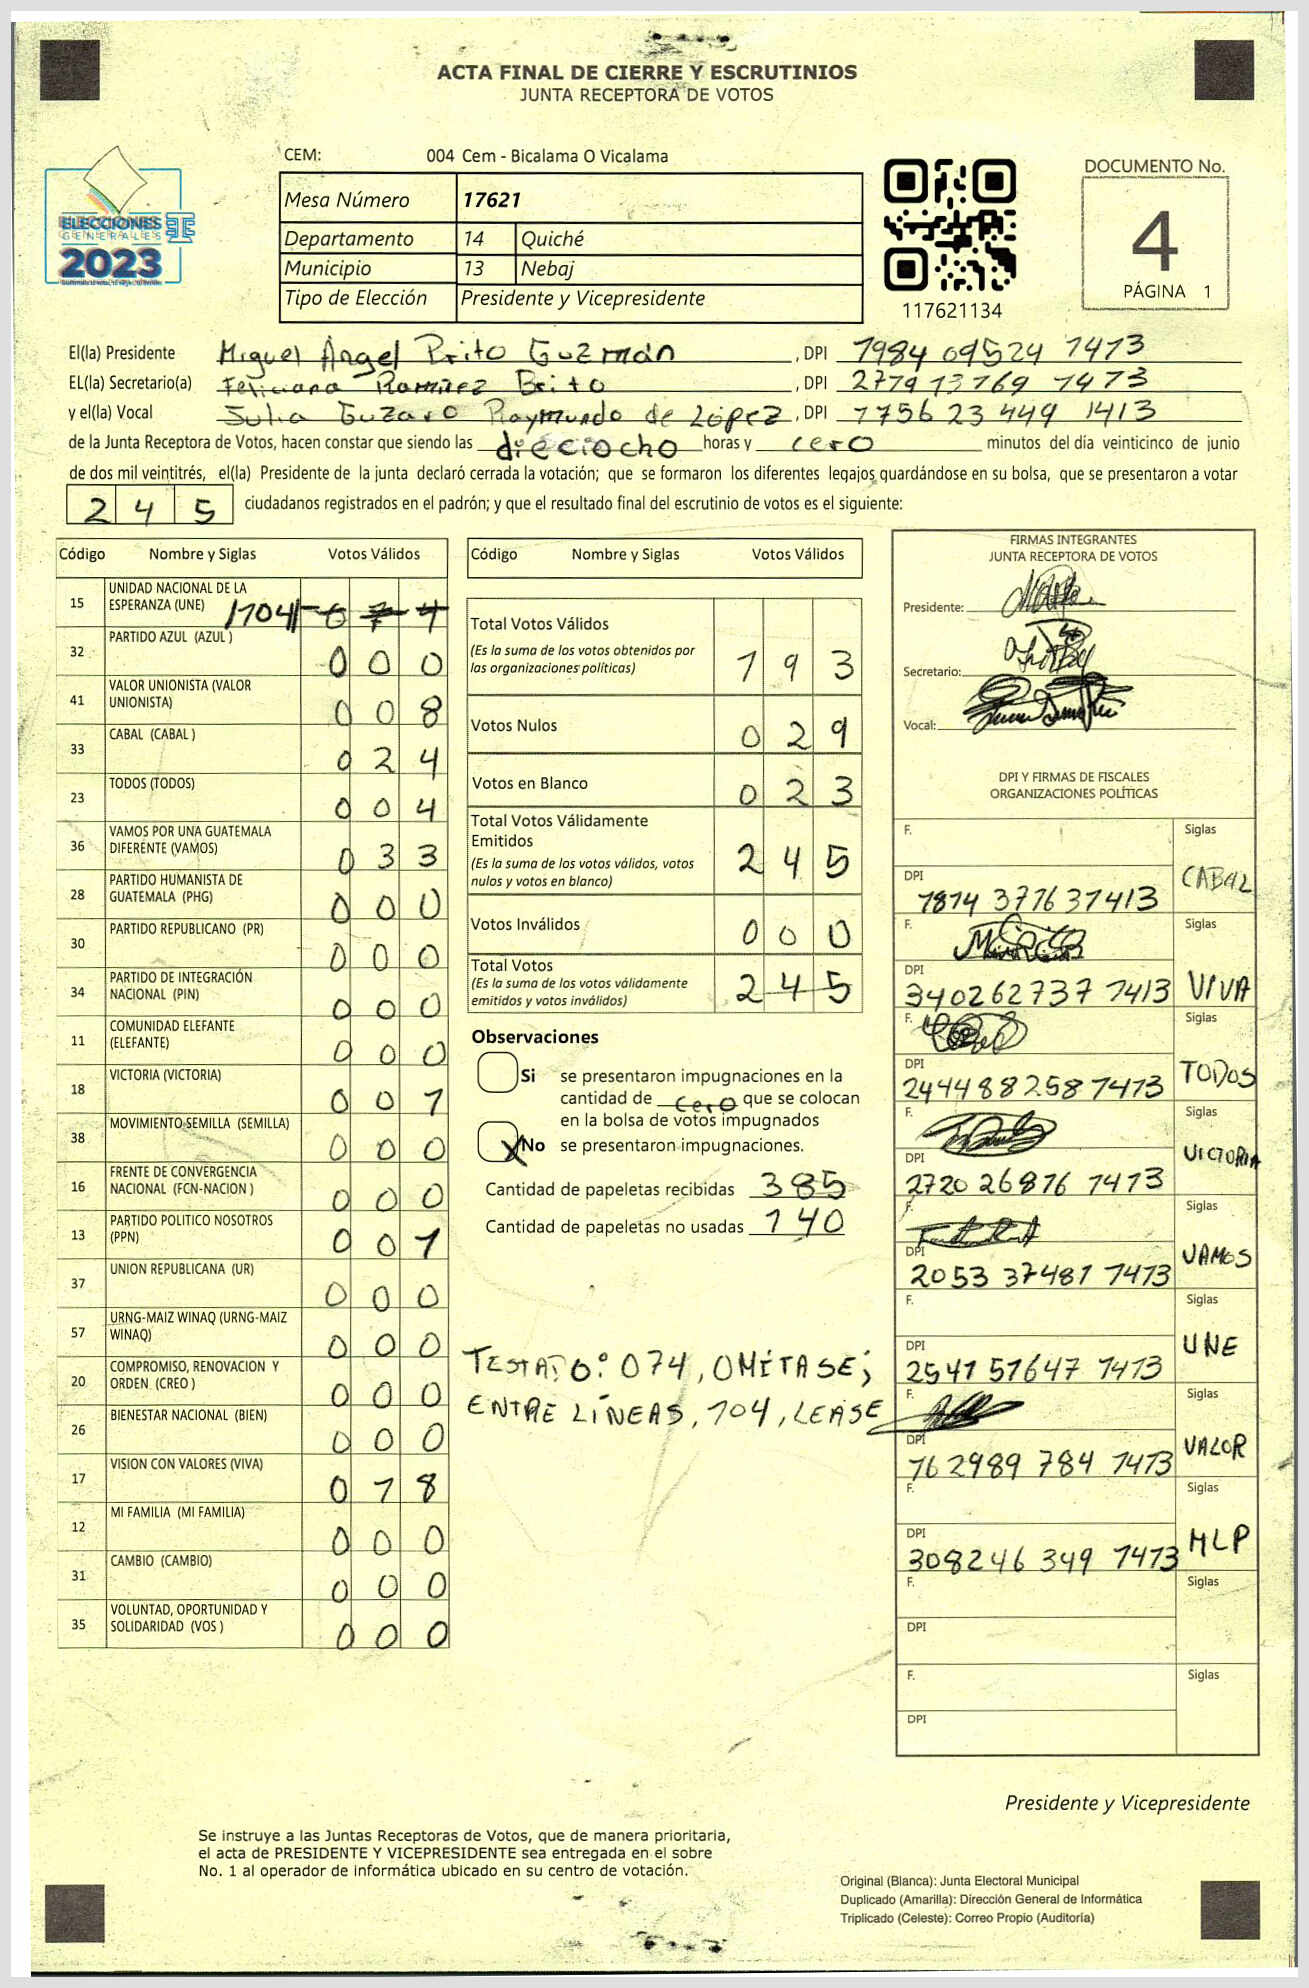 ACTA FINAL DE CIERRE Y ESCRUTINIOS
JUNTA RECEPTORA DE VOTOS
CEM: 004 Cem - Bicalama O Vicalama
ELECCIONES
GENERALES
2023
Mesa Número 17621
Departamento 14 Quiché
Municipio 13 Nebaj
Tipo de Elección Presidente y Vicepresidente
117621134
DOCUMENTO No.
4
PÁGINA 1
El(la) Presidente Miguel Ángel Brito Guzmán, DPI 1984 09524 1413
EL(la) Secretario(a) Feliciana Ramírez Brito, DPI 2779 13769 1413
y el(la) Vocal Julia Guzaro Raymundo de López, DPI 1756 23 449 1413
de la Junta Receptora de Votos, hacen constar que siendo las dieciocho horas y cero minutos del día veinticinco de junio
de dos mil veintitrés, el(la) Presidente de la junta declaró cerrada la votación; que se formaron los diferentes legajos guardándose en su bolsa, que se presentaron a votar
245 ciudadanos registrados en el padrón; y que el resultado final del escrutinio de votos es el siguiente:
Código Nombre y Siglas Votos Válidos
15 UNIDAD NACIONAL DE LA ESPERANZA (UNE) 104 074
32 PARTIDO AZUL (AZUL ) 000
41 VALOR UNIONISTA (VALOR UNIONISTA) 008
33 CABAL (CABAL ) 024
23 TODOS (TODOS) 004
36 VAMOS POR UNA GUATEMALA DIFERENTE (VAMOS) 033
28 PARTIDO HUMANISTA DE GUATEMALA (PHG) 000
30 PARTIDO REPUBLICANO (PR) 000
34 PARTIDO DE INTEGRACIÓN NACIONAL (PIN) 000
11 COMUNIDAD ELEFANTE (ELEFANTE) 000
18 VICTORIA (VICTORIA) 001
38 MOVIMIENTO SEMILLA (SEMILLA) 000
16 FRENTE DE CONVERGENCIA NACIONAL (FCN-NACION ) 000
13 PARTIDO POLITICO NOSOTROS (PPN) 001
37 UNION REPUBLICANA (UR) 000
57 URNG-MAIZ WINAQ (URNG-MAIZ WINAQ) 000
20 COMPROMISO, RENOVACION Y ORDEN (CREO ) 000
26 BIENESTAR NACIONAL (BIEN) 000
17 VISION CON VALORES (VIVA) 018
12 MI FAMILIA (MI FAMILIA) 000
31 CAMBIO (CAMBIO) 000
35 VOLUNTAD, OPORTUNIDAD Y SOLIDARIDAD (VOS ) 000
Código Nombre y Siglas Votos Válidos
Total Votos Válidos
(Es la suma de los votos obtenidos por
las organizaciones políticas) 193
Votos Nulos 029
Votos en Blanco 023
Total Votos Válidamente
Emitidos
(Es la suma de los votos válidos, votos
nulos y votos en blanco) 245
Votos Inválidos 000
Total Votos
(Es la suma de los votos válidamente
emitidos y votos inválidos) 245
Observaciones
Si se presentaron impugnaciones en la
cantidad de cero que se colocan
en la bolsa de votos impugnados
X No se presentaron impugnaciones.
Cantidad de papeletas recibidas 385
Cantidad de papeletas no usadas 140
TESTADO: 074, OMÍTASE;
ENTRE LÍNEAS, 104, LEASE
FIRMAS INTEGRANTES
JUNTA RECEPTORA DE VOTOS
Presidente:
Secretario:
Vocal:
DPI Y FIRMAS DE FISCALES
ORGANIZACIONES POLÍTICAS
F. Siglas
DPI 1814 37763 1413 CABAL
F. Siglas
DPI 340262737 1413 VIVA
F. Siglas
DPI 244488258 1413 TODOS
F. Siglas
DPI 2720 26876 1413 VICTORIA
F. Siglas
DPI 2053 37481 1413 VAMOS
F. Siglas
DPI 2541 51647 1413 UNE
F. Siglas
DPI 162989 784 1413 VALOR
F. Siglas
DPI 308246 349 1413 MLP
F. Siglas
DPI
F. Siglas
DPI
Presidente y Vicepresidente
Se instruye a las Juntas Receptoras de Votos, que de manera prioritaria,
el acta de PRESIDENTE Y VICEPRESIDENTE sea entregada en el sobre
No. 1 al operador de informática ubicado en su centro de votación.
Original (Blanca): Junta Electoral Municipal
Duplicado (Amarilla): Dirección General de Informática
Triplicado (Celeste): Correo Propio (Auditoría)